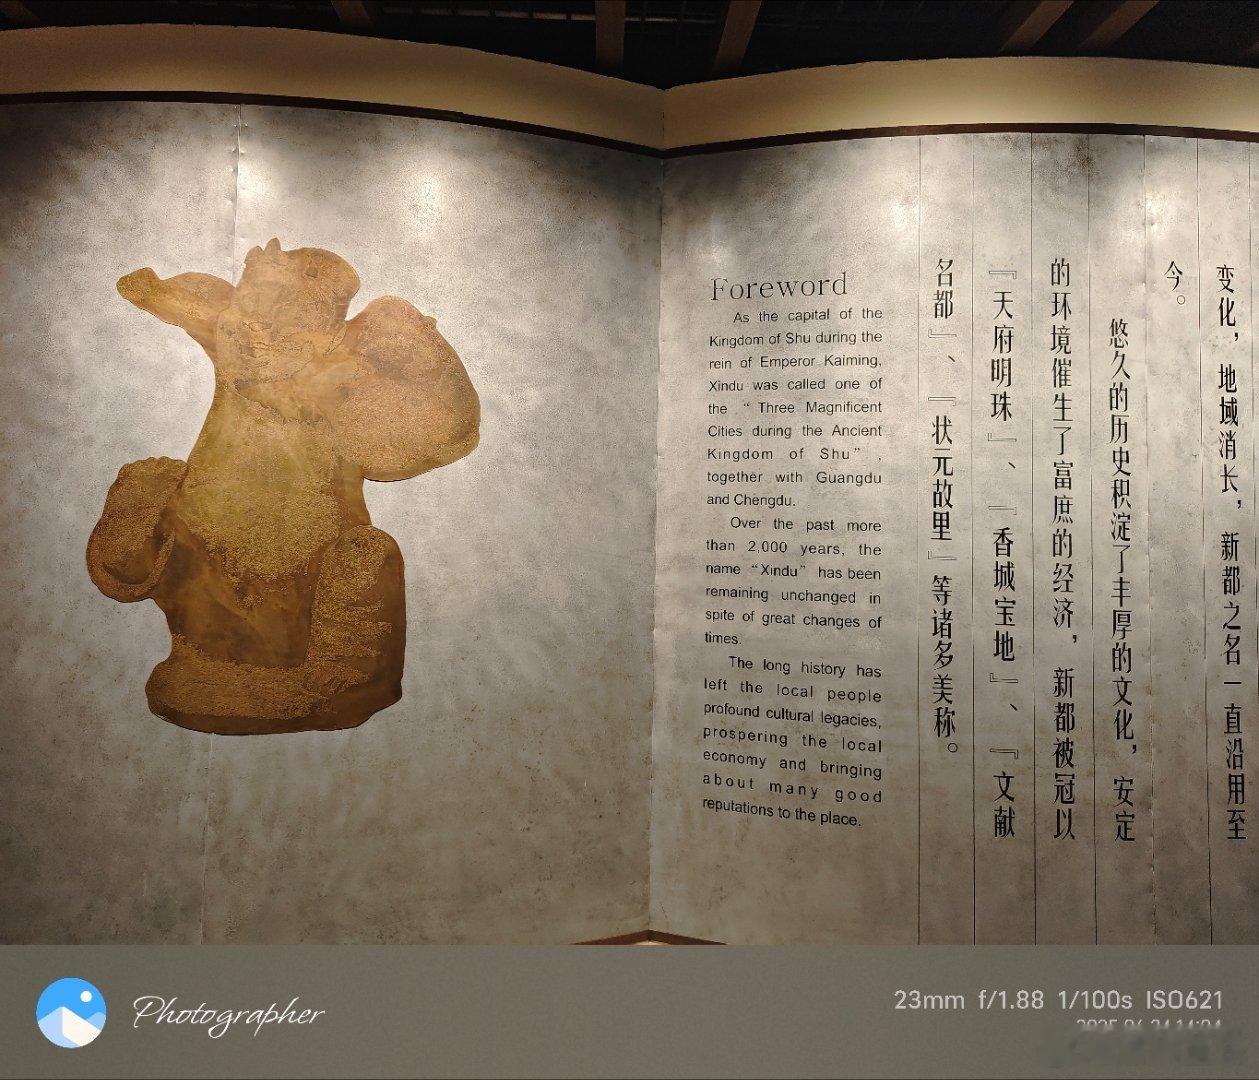 Foreword
As the capital of the
Kingdom of Shu during the
rein of Emperor Kaiming,
Xindu was called one of
the “ Three Magnificent
Cities during the Ancient
Kingdom of Shu” ,
together with Guangdu
and Chengdu.
Over the past more
than 2,000 years, the
name “Xindu” has been
remaining unchanged in
spite of great changes of
times.
The long history has
left the local people
profound cultural legacies,
prospering the local
economy and bringing
about many good
reputations to the place.
变化，地域消长，新都之名一直沿用至
今。
悠久的历史积淀了丰厚的文化，安定
的环境催生了富庶的经济，新都被冠以
『天府明珠』、『香城宝地』、『文献
名都』、『状元故里』等诸多美称。
Photographer
23mm f/1.88 1/100s ISO621